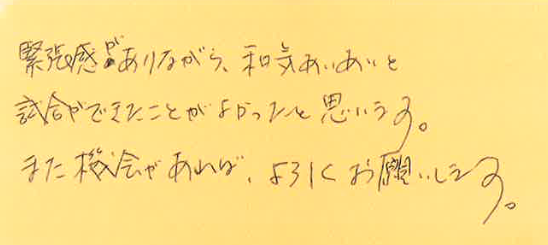 緊張感がありながら、和気あいあいと
試合ができたことがよかったと思います。
また機会があれば、よろしくお願いします。